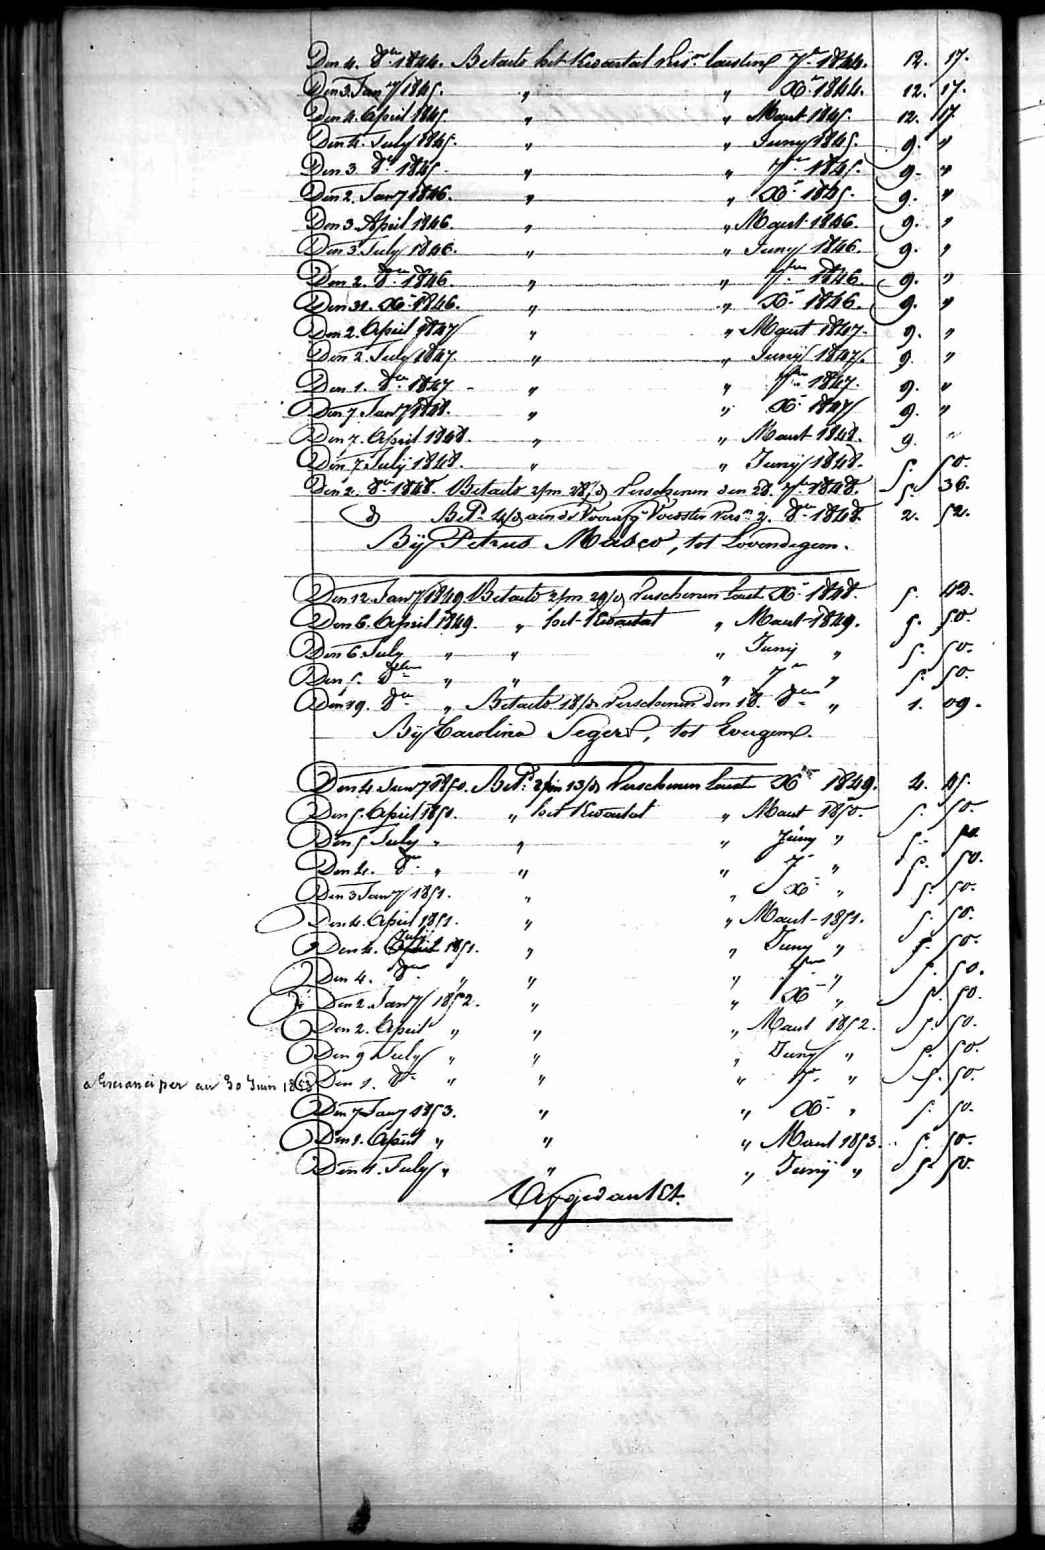 Den 4. 8ber 1844. Betaelt het Kwartal vers.n laesten 7ber 1844. 12. 17.
Den 3. Janry 1845. " " Xber 1844. 12. 17.
Den 4. April 1845. " " Maert 1845. 12. 17
Den 4. July 1845. " " Juny 1845. 9. "
Den 3. 8ber 1845. " " 7ber 1845. 9. "
Den 2. Janry 1846. " " Xber 1845. 9. "
Den 3. April 1846. " " Maert 1846. 9. "
Den 3. July 1846. " " Juny 1846. 9. "
Den 2. 8ber 1846. " " 7ber 1846. 9. "
Den 31. Xber 1846. " " Xber 1846. 9. "
Den 2. April 1847 " " Maert 1847. 9. "
Den 2. July 1847. " " Juny 1847. 9. "
Den 1. 8ber 1847 - " " 7ber 1847. 9. "
Den 7. Janry 1848. " " Xber 1847 9. "
Den 7. April 1848. " " Maert 1848. 9. "
Den 7. July 1848. " " Juny 1848. 5. 50.
Den 2. 8ber 1848. Betaelt 2/m 28/d Verschenen den 28. 7ber 1848. 5. 36.
d Bet.n 4/d aen de Voorafg. Voedster vers.n 2. 8ber 1848. 2. 52.
Bij Petrus Masco, tot Lovendegem.
Den 12. Janry 1849. Betaelt 2/m 29/d Verschenen laest Xber 1848. 5. 42.
Den 6. April 1849. " het Kwartal " Maert 1849. 5. 50.
Den 6 July " " " Juny " 5. 50.
Den 5. 8ber " " " 7ber " 5. 50.
Den 19. 8ber " Betaelt 18/d Verschenen den 18. 8ber " 1. 09.
Bij Carolina Segers, tot Evergem.
Den 4. Janry 1850. Bet.d 2/m 13/d Verschenen laest Xber 1849. 4. 45.
Den 5. April 1850. " het Kwartal " Maert 1850. 5. 50.
Den 5 July " " " Juny " 5. 50
Den 4. 8ber " " " 7ber " 5. 50.
Den 3 Janry 1851. " " Xber " 5. 50.
Den 4. April 1851. " " Maert - 1851. 5. 50.
July
Den 4. April 1851. " " Juny " 5. 50.
Den 4. 8ber " " " 7ber " 5. 50.
Den 2. Janry 1852. " " Xber " 5. 50.
Den 2. April " " " Maert 1852. 5. 50.
Den 9 July " " " Juny " 5. 50.
a Emanciper au 30 Juin 1853 Den 1. 8ber " " " 7ber " 5. 50.
Den 7 Janry 1853. " " Xber " 5. 50.
Den 1. April " " " Maert 1853. 5. 50.
Den 1. July " " " Juny " 5. 50.
Afgedankt.